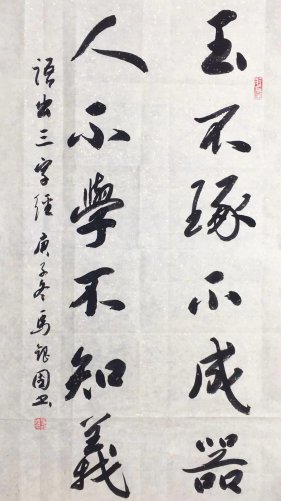 玉不琢不成器
人不學不知義
語出三字經庚子冬馬銀周书